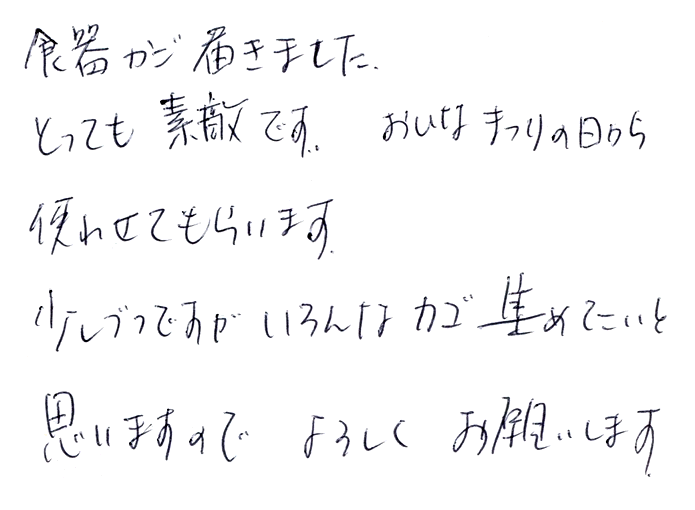 食器カゴ届きました。
とっても素敵です。 おひなまつりの日から
使わせてもらいます。
少しづつですが いろんなカゴ集めていこいと
思いますので よろしく お願いします。